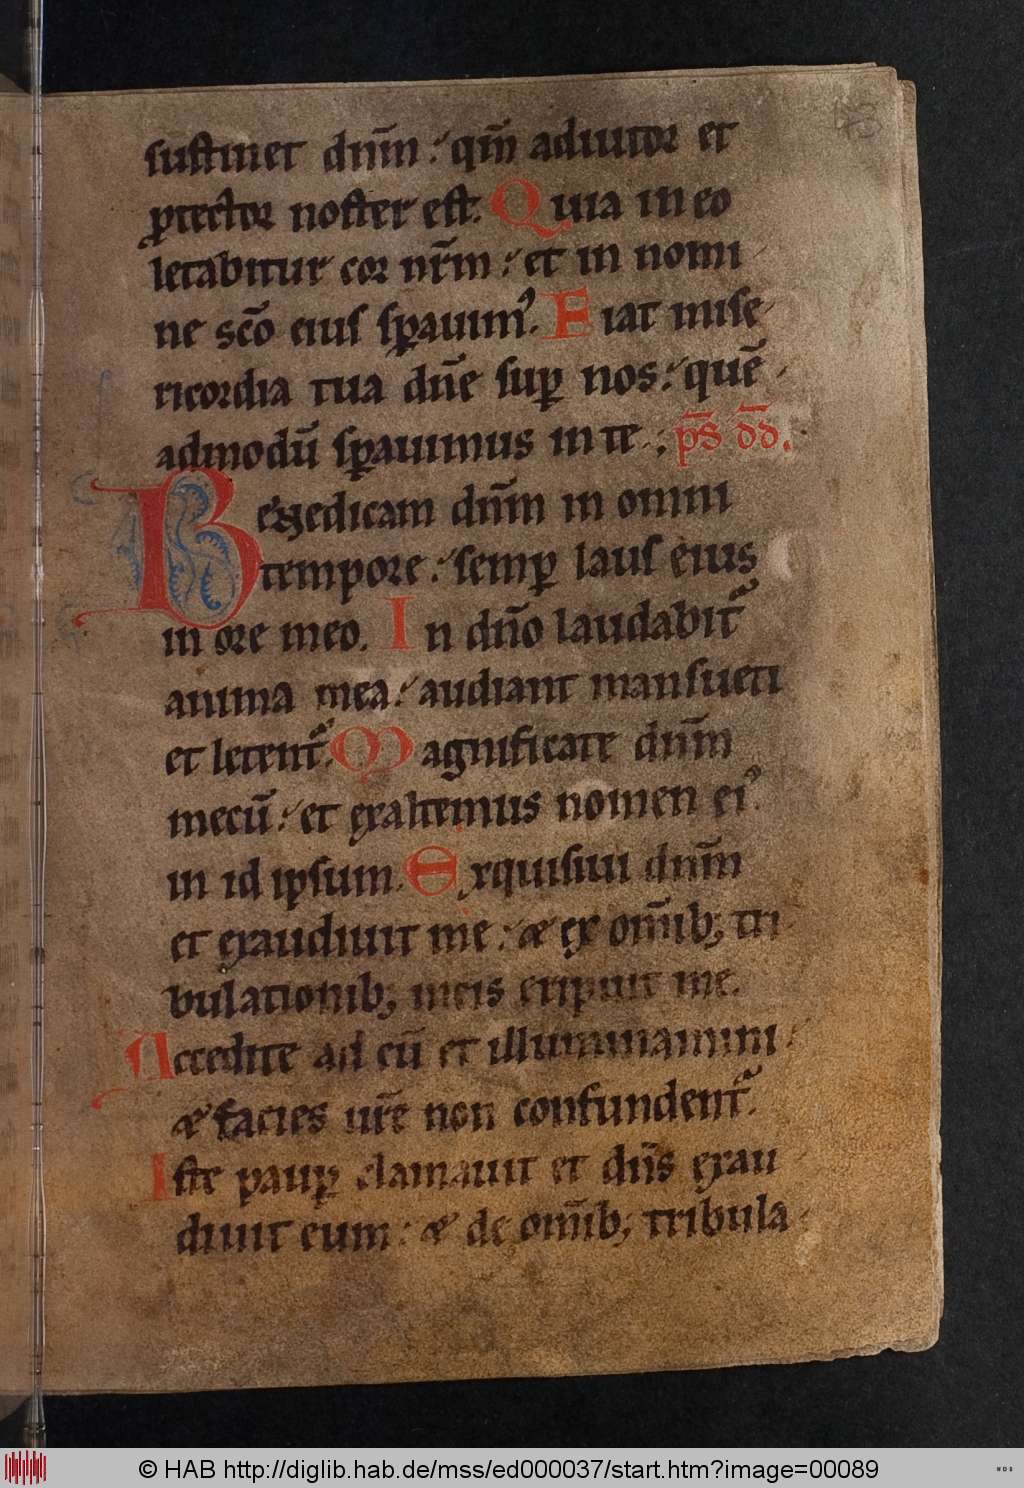 43
sustinet dnm̄ : qm̄ adiutor et
ꝓtector noster est. Quia in eo
letabitur cor nr̄m : et in nomi
ne scō eius sꝑauim᾽. Fiat mise
ricordia tua dn̄e suꝑ nos : quē
admodū sꝑauimus in te. ps̄ dd̄.
Benedicam dn̄m in omni
tempore : semꝑ laus eius
in ore meo. In dn̄o laudabit᷑
anima mea : audiant mansueti
et letent᷑. Magnificate dn̄m
mecū : et exaltemus nomen ei᾽.
in id ipsum. Exquisiui dn̄m
et exaudiuit me : & ex om̄ib; tri
bulationib; meis eripuit me.
Accedite ad eū et illuminamini
& facies ur̄e non confundent᷑.
Iste pauꝑ clamauit et dn̄s exau
diuit eum : & de om̄ib; tribula
© HAB http://diglib.hab.de/mss/ed000037/start.htm?image=00089